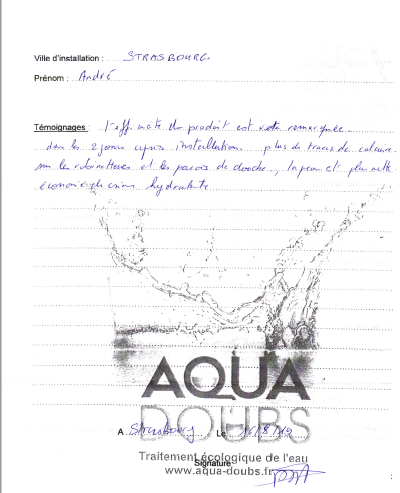 Ville d'installation : STRASBOURG
Prénom : André
Témoignages : l'efficacité du produit est vite remarquée
dans les 2 jours après installation plus de traces de calcaire
sur les robinetteries et les parois de douche, la peau est plus nette
économie crème hydratante
AQUA
DOUBS
A Strasbourg Le
Traitement écologique de l'eau
Signature
www.aqua-doubs.fr